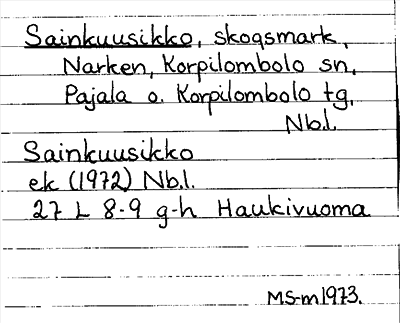 Sainkuusikko, skogsmark,
Narken, Korpilombolo sn,
Pajala o. Korpilombolo tg,
Nb.l.
Sainkuusikko
ek (1972) Nb.l.
27 L 8-9 g-h Haukivuoma
MS-m1973.